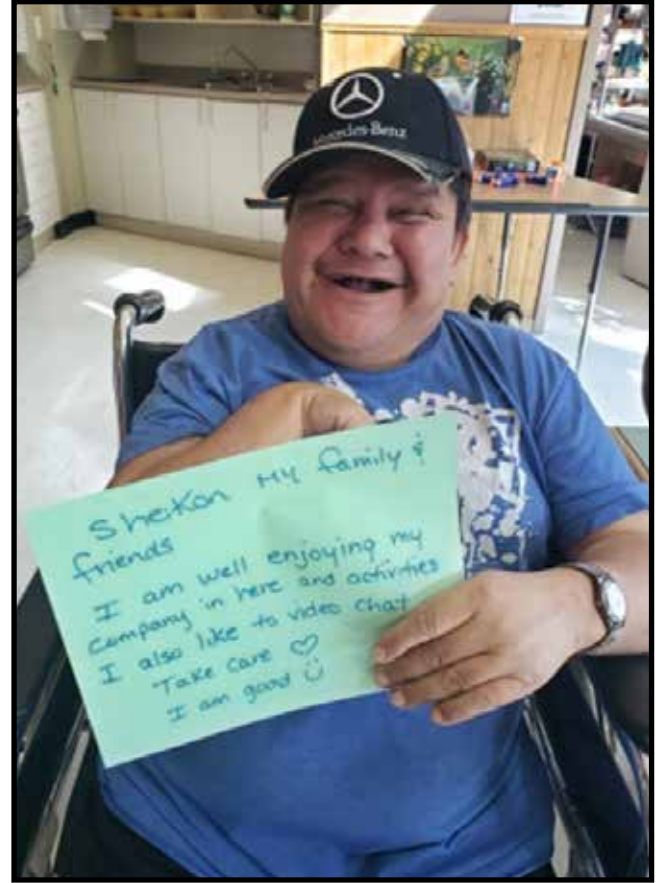 Mercedes-Benz
She:Kon My family &
friends
I am well enjoying my
company in here and activities
I also like to video chat
Take care ♡
I am good ☺